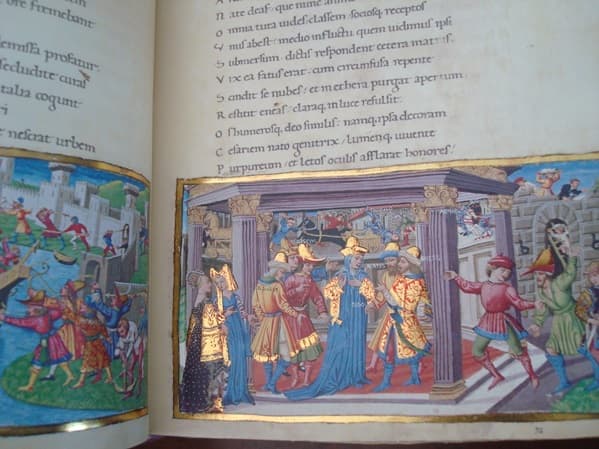 ore fremebant
demissa profatur
secludite curas
talia cogunt
ri
nesciat urbem
N ate dea: que nunc
O mnia tuta uides: classem sociosq receptos
V nus abest: medio influctu quem uidimus ipsi
S ubmersum: dictis respondent cetera matris
V ix ea fatus erat: cum circumfusa repente
S cindit se nubes: et in ethera purgat apertum
R estitit eneas: claraq in luce refulsit
O s humerosq deo similis: namq ipsa decoram
C esariem nato genitrix/ lumenq iuuente
P urpureum/ et letos oculis afflarat honores